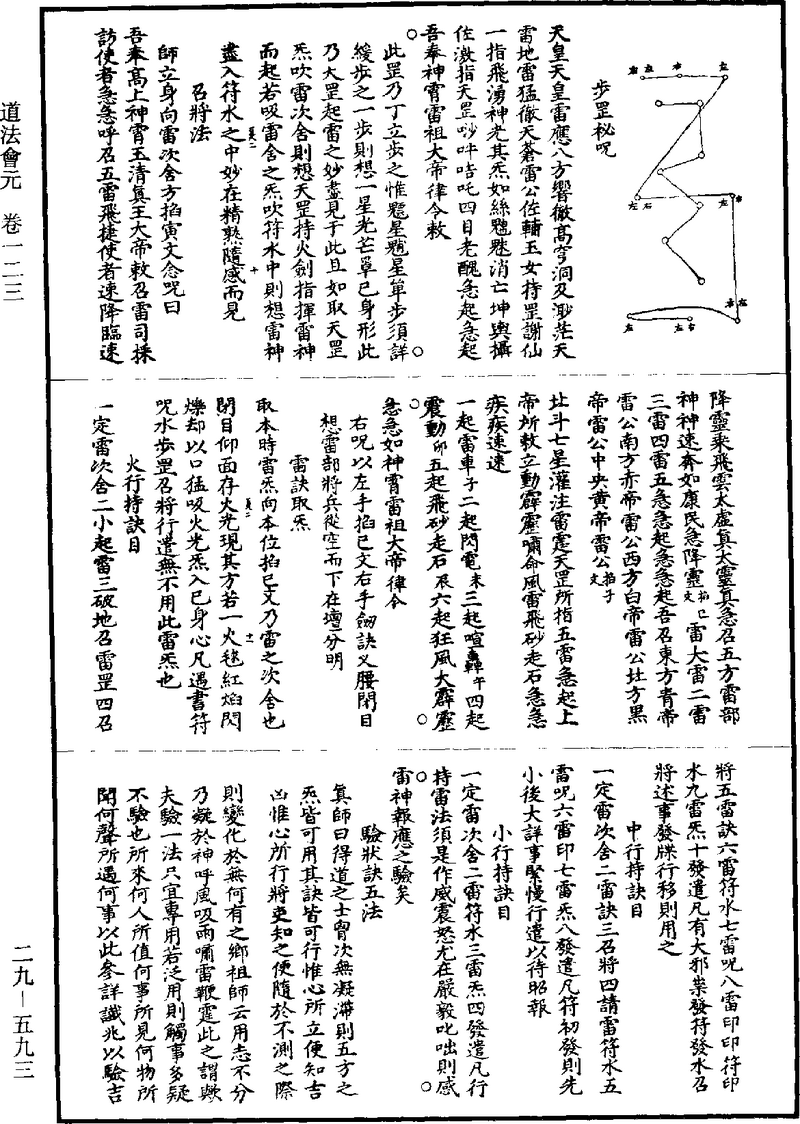 道法會元　卷一二三
步罡秘咒
天皇天皇雷應八方響徹高穹洞及渺茫天
雷地雷猛徹天蒼雷公佐輔玉女持罡謝仙
一指飛湧神光其炁如絲魑魅消亡坤輿攝
佐激指天罡吵吽咭吒四目老醜急起急起
吾奉神霄雷祖大帝律令敕
此罡乃丁立步之惟魒星魓星單步須詳
緩步之一步則想一星光芒罩己身形此
乃大罡起雷之妙盡見于此且如取天罡
炁吹雷次舍則想天罡持火劍指揮雷神
而起若吸雷舍之炁吹符水中則想雷神
盡入符水之中妙在精熟隨感而見
召將法
師立身向雷次舍方掐寅文念咒曰
吾奉高上神霄玉清真王大帝敕召雷司採
訪使者急急呼召五雷飛捷使者速降臨速
降靈乘飛雲太虛真太靈真急召五方雷部
神神速奔如康民急降靈掐巳文雷大雷二雷
三雷四雷五急急起急急起吾召東方青帝
雷公南方赤帝雷公西方白帝雷公北方黑
帝雷公中央黃帝雷公掐子文
北斗七星灌注雷霆天罡所指五雷急起上
帝所敕立動霹靂嘯命風雷飛砂走石急急
疾疾速速
一起雷車子二起閃電未三起喧轟午四起
震動卯五起飛砂走石辰六起狂風大霹靂
急急如神霄雷祖大帝律令
右咒以左手掐巳文右手劍訣叉腰閉目
想雷部將兵從空而下在壇分明
雷訣取炁
取本時雷炁向本位掐巳文乃雷之次舍也
閉目仰面存火光現其方若一火毬紅焰閃
爍却以口猛吸火光炁入已身心凡遇書符
咒水步罡召將行遣無不用此雷炁也
火行持訣目
一定雷次舍二小起雷三破地召雷罡四召
將五雷訣六雷符水七雷咒八雷印印符印
水九雷炁十發遣凡有大邪祟發符發水召
將述事發牒行移則用之
中行持訣目
一定雷次舍二雷訣三召將四請雷符水五
雷咒六雷印七雷炁八發遣凡符初發則先
小後大詳事緊慢行遣以待昭報
小行持訣目
一定雷次舍二雷符水三雷炁四發遣凡行
持雷法須是作威震怒尤在嚴毅叱咄則感
雷神報應之驗矣
驗狀訣五法
真師曰得道之士胷次無凝滯則五方之
炁皆可用其訣皆可行惟心所立便知吉
凶惟心所行將吏知之便隨於不測之際
則變化於無何有之鄉祖師云用志不分
乃凝於神呼風吸雨嘯雷鞭霆此之謂歟
夫驗一法只宜專用若泛用則觸事多疑
不驗也所來何人所值何事所見何物所
聞何聲所遇何事以此參詳讖兆以驗吉
二九－五九三